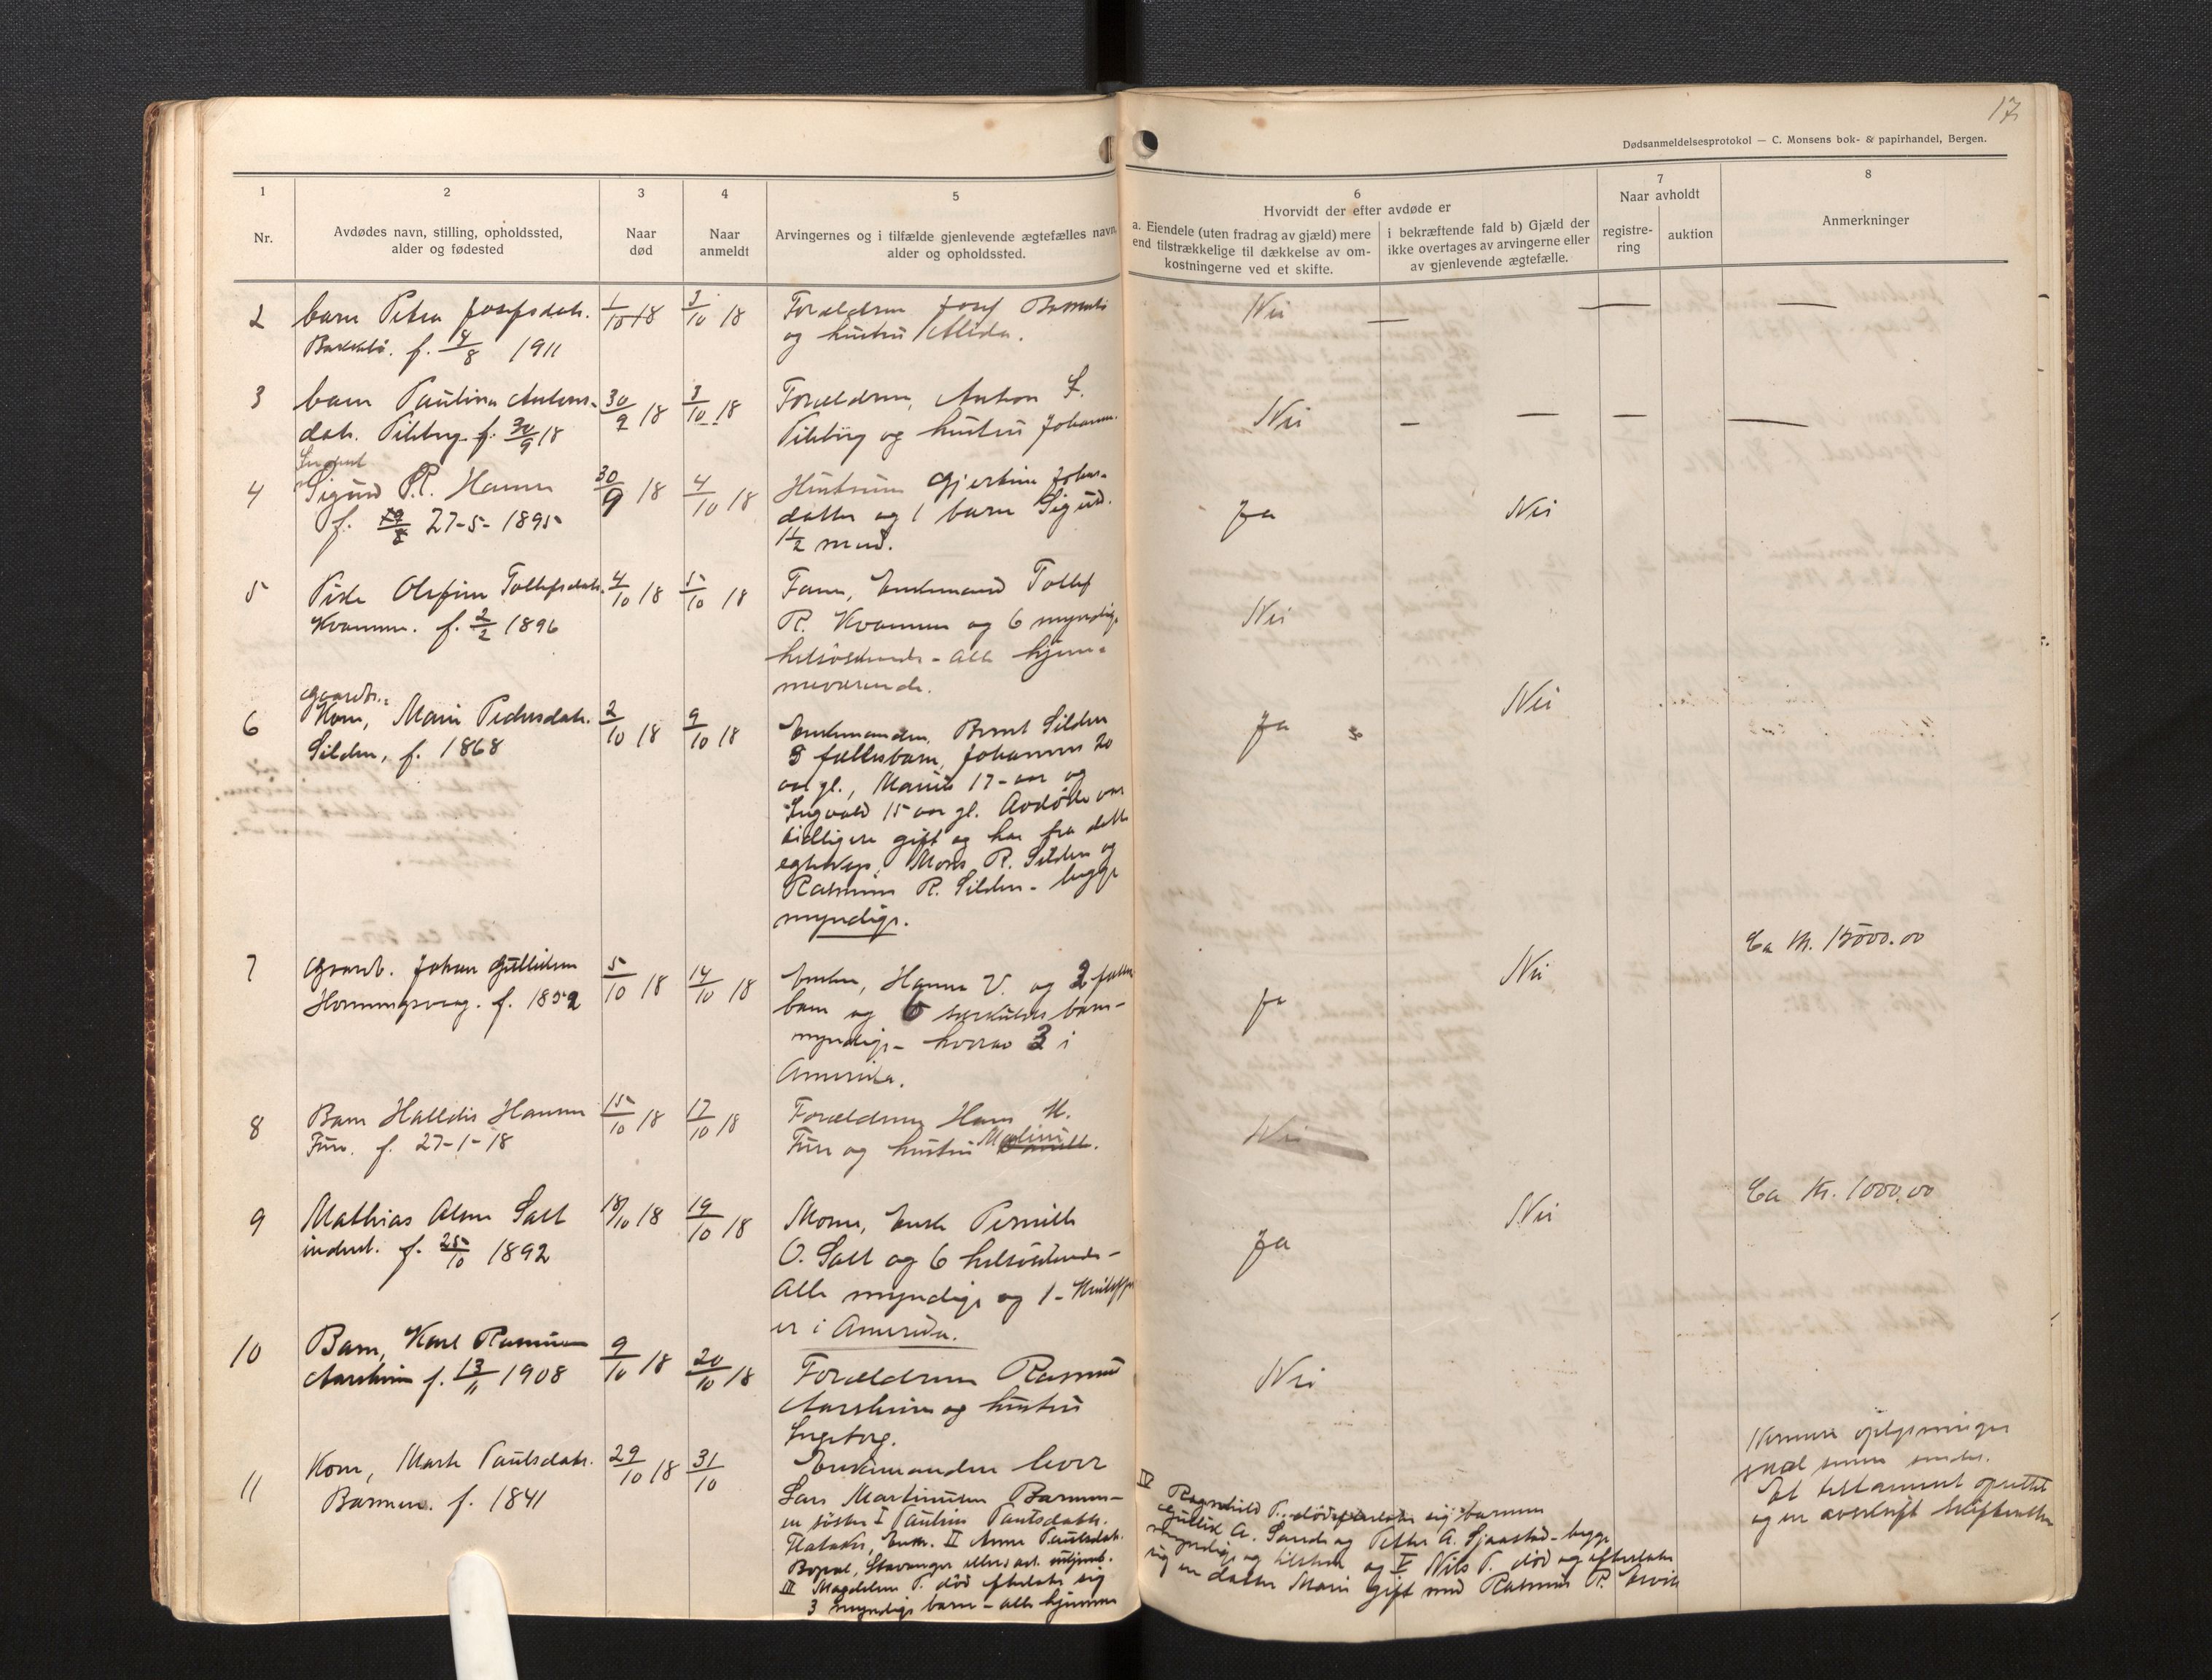 17
Dødsanmeldelsesprotokol — C. Monsens bok- & papirhandel, Bergen.
1
Nr.
2
Avdødes navn, stilling, opholdssted,
alder og fødested
3
Naar
død
4
Naar
anmeldt
5
Arvingernes og i tilfælde gjenlevende ægtefælles navn,
alder og opholdssted.
6
Hvorvidt der efter avdøde er
a. Eiendele (uten fradrag av gjæld) mere
end tilstrækkelige til dækkelse av om-
kostningerne ved et skifte.
i bekræftende fald b) Gjæld der
ikke overtages av arvingerne eller
av gjenlevende ægtefælle.
7
Naar avholdt
registre-
ring
auktion
8
Anmerkninger
2
barn Petra Josefsdatr.
f. 4/8 1911
1/10 18
3/10 18
Forældrene Josef
og hustru Alida.
Nei — — —
3
barn Paulina Antons-
datr. f. 30/9 18
30/9 18
3/10 18
Forældrene, Anton
og hustru Johanne.
Nei — — — —
4
Sigurd P.R. Hamre
f. 27-5-1895
30/9 18
4/10 18
Hustruen Gjertine Johs-
datter og 1 barn Sigurd.
1½ mnd.
Ja
Nei
5
Pike Olefine Tollefsdatr.
Kvamme. f. 2/2 1896
4/10 18
5/10 18
Faren, Enkemand Tollef
R. Kvamme og 6 myndige
helsøskende - alle hjem-
meværende.
Nei
6
Gaardbr.
Kone, Marie Pedersdatr.
Silden, f. 1868
2/10 18
9/10 18
Enkemanden, Bernt Silden
3 fællesbarn, Johannes 20
aar gl., Marius 17-aar og
Ingvald 15 aar gl. Avdøde var
tidligere gift og har fra dette
egteskap, Mons R. Silden og
Rasmus R. Silden - begge
myndige.
Ja
Nei
7
Gaardb. Johan Gulliksen
Hornungsvaag. f. 1852
5/10 18
14/10 18
Enken, Hanna V. og 2 fælles
barn og 6 særkuldsbarn-
myndige - hvorav 3 i
Amerika.
Ja
Nei
Ca kr. 15000.00
8
Barn Halldis Hansen
Fure. f. 27-1-18
15/10 18
17/10 18
Forældrene Hans M.
Fure og hustru Maline
Nei
9
Mathias Olsen Salt
indreb. f. 25/10 1892
18/10 18
19/10 18
Moren, Enke Pernille
O. Salt og 6 helsøskende -
Alle myndige og 1 -
er i Amerika.
Ja
Nei
Ca kr. 1000.00
10
Barn, Karl Rasmussen
Aarsheim f. 13/11 1908
9/10 18
20/10 18
Forældrene Rasmus
Aarsheim og hustru
Ingeborg.
Nei
11
Kone, Marte Paulsdatr.
Barmen. f. 1841
29/10 18
31/10
Enkemanden lever
Lars Martinusen Barmen -
en søster I Pauline Paulsdatr.
Flatøke, Enke. II Anne Paulsdatr.
Stavanger ellers
III Magdelene P. død efterlater sig
3 myndige barn - alle hjemme
IV Ragnhild P. død efterlater sig barnene
Gullik A. Sande og Petter A. Sjaastad - begge
myndige og tilstede og V Nils P. død og efterlater
sig en datter Marie gift med Rasmus R. Ervik
Nærmere oplysninger
skal senere sendes.
Et testament oprettet
og en avskrift skifteretten